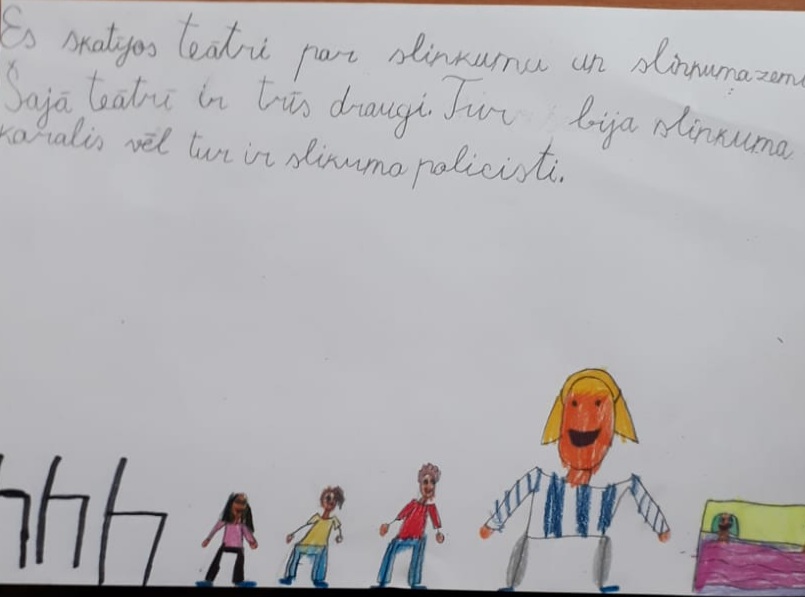 Es skatījos teātri par slinkumu un slinkuma zemi
Šajā teātrī ir trīs draugi. Tur bija slinkuma
karalis vēl tur ir slikuma policisti.